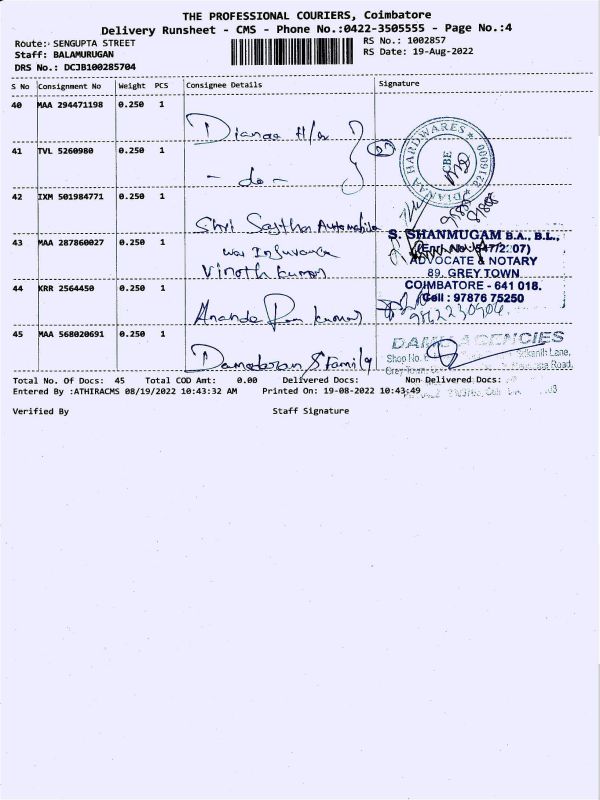 THE PROFESSIONAL COURIERS, Coimbatore
Delivery Runsheet - CMS - Phone No.:0422-3505555 - Page No.:4
Route: SENGUPTA STREET
RS No.: 1002857
Staff: BALAMURUGAN
RS Date: 19-Aug-2022
DRS No.: DCJB100285704
S No Consignment No Weight PCS Consignee Details Signature
40 MAA 294471198 0.250 1 Dianaa H/w
41 TVL 5260980 0.250 1 - do -
42 IXM 501984771 0.250 1 Shri Sastha Automobile
43 MAA 287860027 0.250 1
Vinoth kumar
44 KRR 2564450 0.250 1 Ananda Ram kumar
45 MAA 568020691 0.250 1 Damodaran & Family
DIANAA HARDWARES
CBE
S. SHANMUGAM B.A., B.L.,
ADVOCATE & NOTARY
89, GREY TOWN
COIMBATORE - 641 018.
Cell : 97876 75250
9862230906
AGENCIES
Shop No.
Srikanth Lane,
Total No. Of Docs: 45 Total COD Amt: 0.00 Delivered Docs: Non Delivered Docs:
Entered By :ATHIRACMS 08/19/2022 10:43:32 AM Printed On: 19-08-2022 10:43:49
Verified By Staff Signature